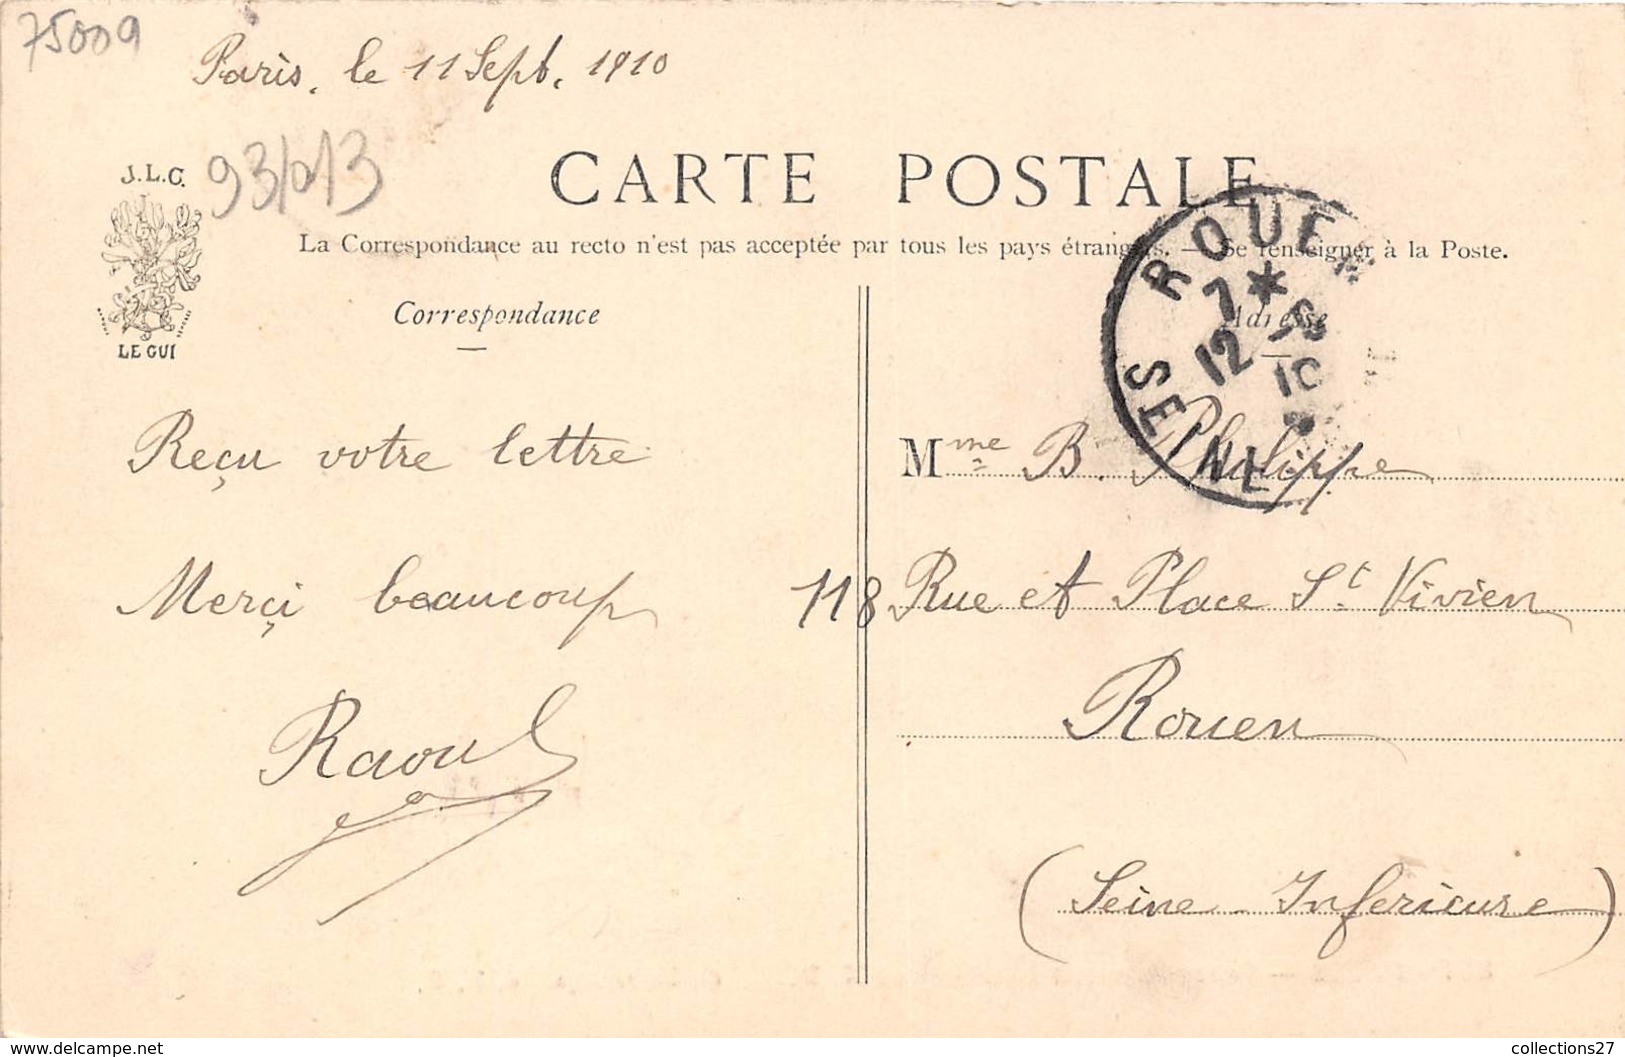 75009
Paris, le 11 Sept. 1910
93/013
J.L.C.
LE GUI
CARTE POSTALE
La Correspondance au recto n'est pas acceptée par tous les pays étrangers. — Se renseigner à la Poste.
Correspondance
Adresse
ROUEN
7 *
12 - 9
10
SEINE
Reçu votre lettre
Merçi beaucoup
Raoul
Mme B. Philippe
118 Rue et Place St Vivien
Rouen
(Seine-Inferieure)
delcampe.net
collections27